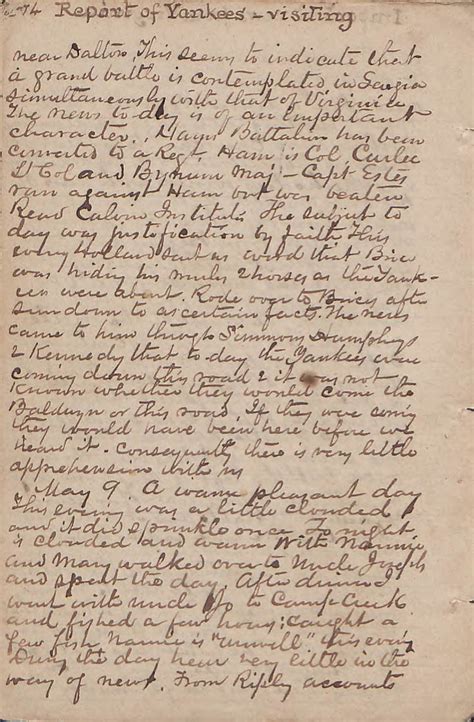 74 Report of Yankees - visiting
near Dalton. This seems to indicate that
a grand battle is contemplated in Georgia
simultaneously with that of Virginia
The news to-day is of an important
character. Hams Battalion has been
converted to a Regt. Ham is Col, Curlee
Lt Col and Bynum Maj - Capt Estes
ran against Ham but was beaten
Read Calvin Institut. The subject to
day was justification by faith. This
evening Holland sent us word that Brice
was hiding his mules & horses as the Yank-
ees were about. Rode over to Brices after
sun down to ascertain facts. The news
came to him through Simmons Humphrys
& Kennedy that to-day the Yankees were
coming down this road & it was not
known whether they would come the
Baldwyn or this road. If they were coming
they would have been here before we
heard it. Consequently there is very little
apprehension with us
May 9. A warm pleasant day
This evening was a little clouded
and it did sprinkle once. To night
is clouded and warm With Nannie
and Mary walked over to Uncle Joseph
and spent the day. After dinner I
went with uncle Jo to Camp Creek
and fished a few hours; caught a
few fish Nannie is "unwell" this evening
During the day hear very little in the
way of news. From Riply accounts